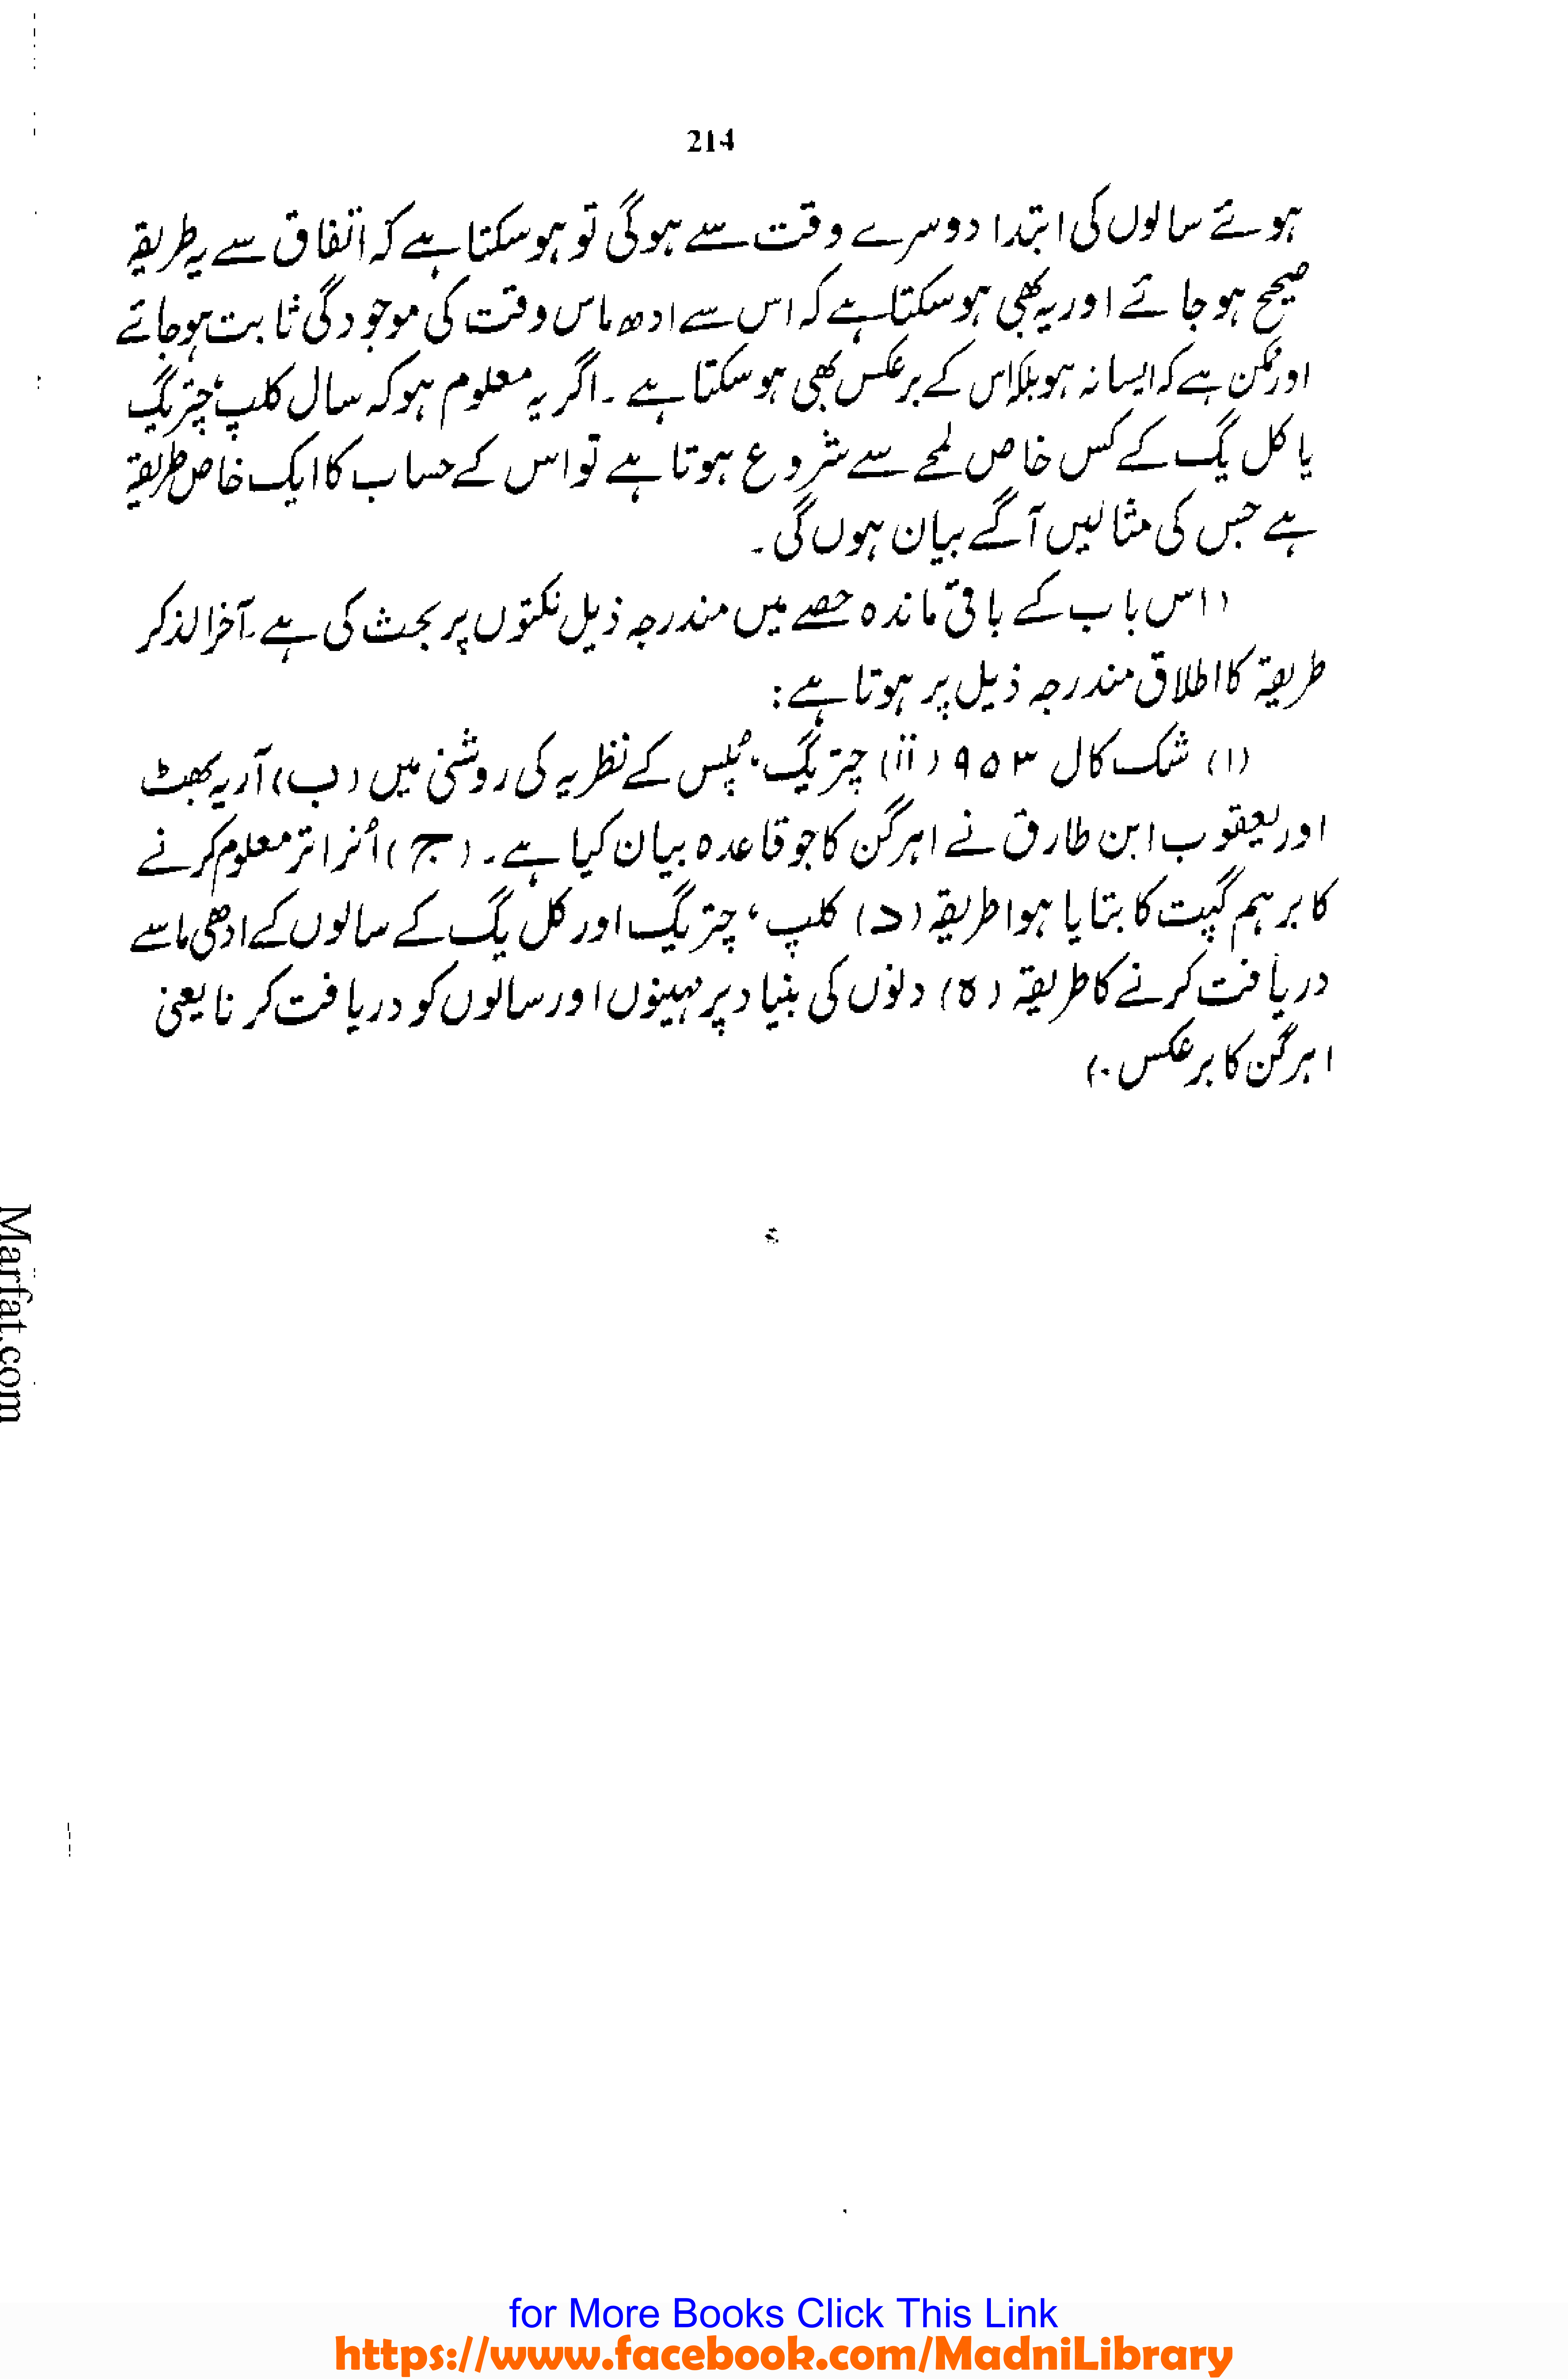 214
ہوئے سالوں کی ابتدا دوسرے وقت سے ہوگی تو ہوسکتا ہے کہ اتفاق سے یہ طریقہ
صحیح ہو جائے اور یہ بھی ہوسکتا ہے کہ اس سے ادھ ماس وقت کی موجودگی ثابت ہوجائے
اور ممکن ہے کہ ایسا نہ ہو بلکہ اس کے برعکس بھی ہوسکتا ہے۔ اگر یہ معلوم ہو کہ سال کلپ، چتریگ
یا کل یگ کے کس خاص لمحے سے شروع ہوتا ہے تو اس کے حساب کا ایک خاص طریقہ
ہے جس کی مثالیں آگے بیان ہوں گی۔
(اس باب کے باقی ماندہ حصے میں مندرجہ ذیل نکتوں پر بحث کی ہے۔ آخرالذکر
طریقہ کا اطلاق مندرجہ ذیل پر ہوتا ہے:
(ا) شک کال ۹۵۳ (ii) چتریگ، پُلِس کے نظریہ کی روشنی میں (ب) آریہ بھٹ
اور یعقوب ابن طارق نے اہرگن کا جو قاعدہ بیان کیا ہے۔ (ج) اُنراتر معلوم کرنے
کا برہم گپت کا بتایا ہوا طریقہ (د) کلپ، چتریگ اور کل یگ کے سالوں کے ادھی ماسے
دریافت کرنے کا طریقہ (ہ) دنوں کی بنیاد پر مہینوں اور سالوں کو دریافت کرنا یعنی
اہرگن کا برعکس۔)
Marfat.com
for More Books Click This Link
https://www.facebook.com/MadniLibrary